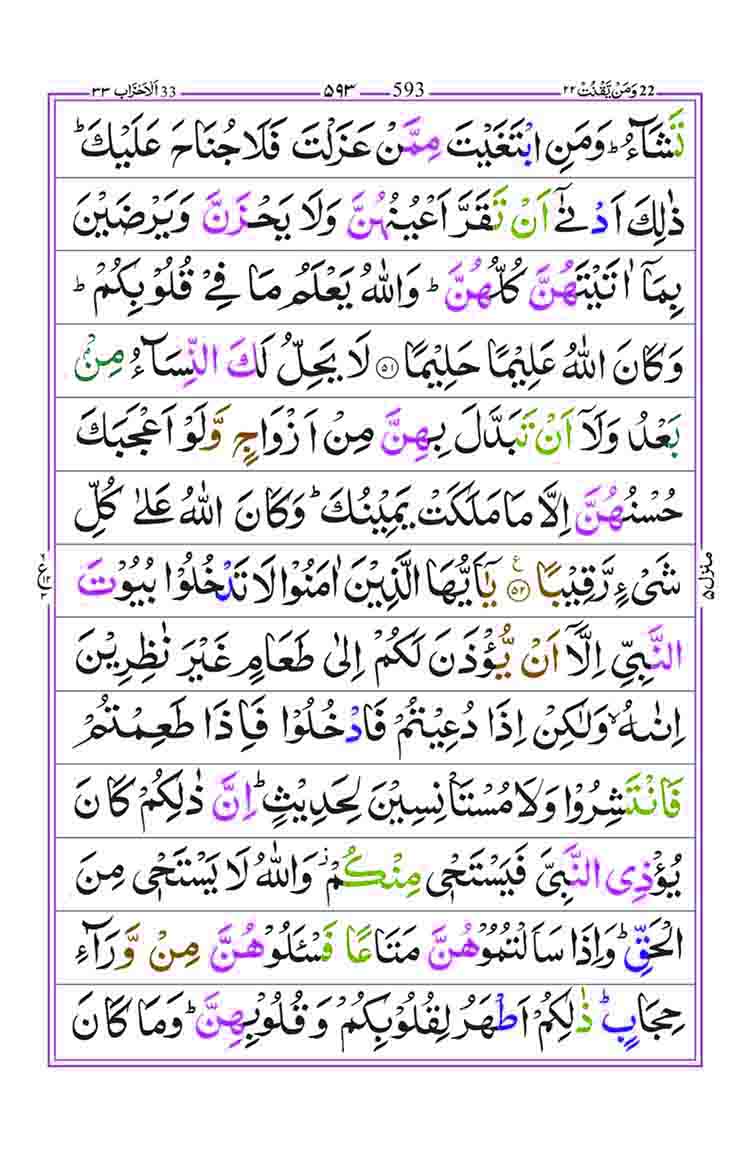 33 اَلْاَحْزَاب ٣٣ ۵۹۳ 593 22 وَمَنْ يَّقْنُتْ ٢٢
تَشَآءُ ؕ وَمَنِ ابْتَغَيْتَ مِمَّنْ عَزَلْتَ فَلَا جُنَاحَ عَلَيْكَ ؕ
ذٰلِكَ اَدْنٰٓى اَنْ تَقَرَّ اَعْيُنُهُنَّ وَلَا يَحْزَنَّ وَيَرْضَيْنَ
بِمَآ اٰتَيْتَهُنَّ كُلُّهُنَّ ؕ وَاللّٰهُ يَعْلَمُ مَا فِىْ قُلُوْبِكُمْ ؕ
وَكَانَ اللّٰهُ عَلِيْمًا حَلِيْمًا ۵۱ لَا يَحِلُّ لَكَ النِّسَآءُ مِنْۢ
بَعْدُ وَلَآ اَنْ تَبَدَّلَ بِهِنَّ مِنْ اَزْوَاجٍ وَّلَوْ اَعْجَبَكَ
حُسْنُهُنَّ اِلَّا مَا مَلَكَتْ يَمِيْنُكَ ؕ وَكَانَ اللّٰهُ عَلٰى كُلِّ
شَىْءٍ رَّقِيْبًا ۵۲ ع يٰٓاَيُّهَا الَّذِيْنَ اٰمَنُوْا لَا تَدْخُلُوْا بُيُوْتَ
النَّبِىِّ اِلَّآ اَنْ يُّؤْذَنَ لَكُمْ اِلٰى طَعَامٍ غَيْرَ نٰظِرِيْنَ
اِنٰىهُ ۙ وَلٰكِنْ اِذَا دُعِيْتُمْ فَادْخُلُوْا فَاِذَا طَعِمْتُمْ
فَانْتَشِرُوْا وَلَا مُسْتَاْنِسِيْنَ لِحَدِيْثٍ ؕ اِنَّ ذٰلِكُمْ كَانَ
يُؤْذِى النَّبِىَّ فَيَسْتَحْىٖ مِنْكُمْ ؗ وَاللّٰهُ لَا يَسْتَحْىٖ مِنَ
الْحَقِّ ؕ وَاِذَا سَاَلْتُمُوْهُنَّ مَتَاعًا فَسْـَٔلُوْهُنَّ مِنْ وَّرَآءِ
حِجَابٍ ؕ ذٰلِكُمْ اَطْهَرُ لِقُلُوْبِكُمْ وَقُلُوْبِهِنَّ ؕ وَمَا كَانَ
منزل ۵
ع